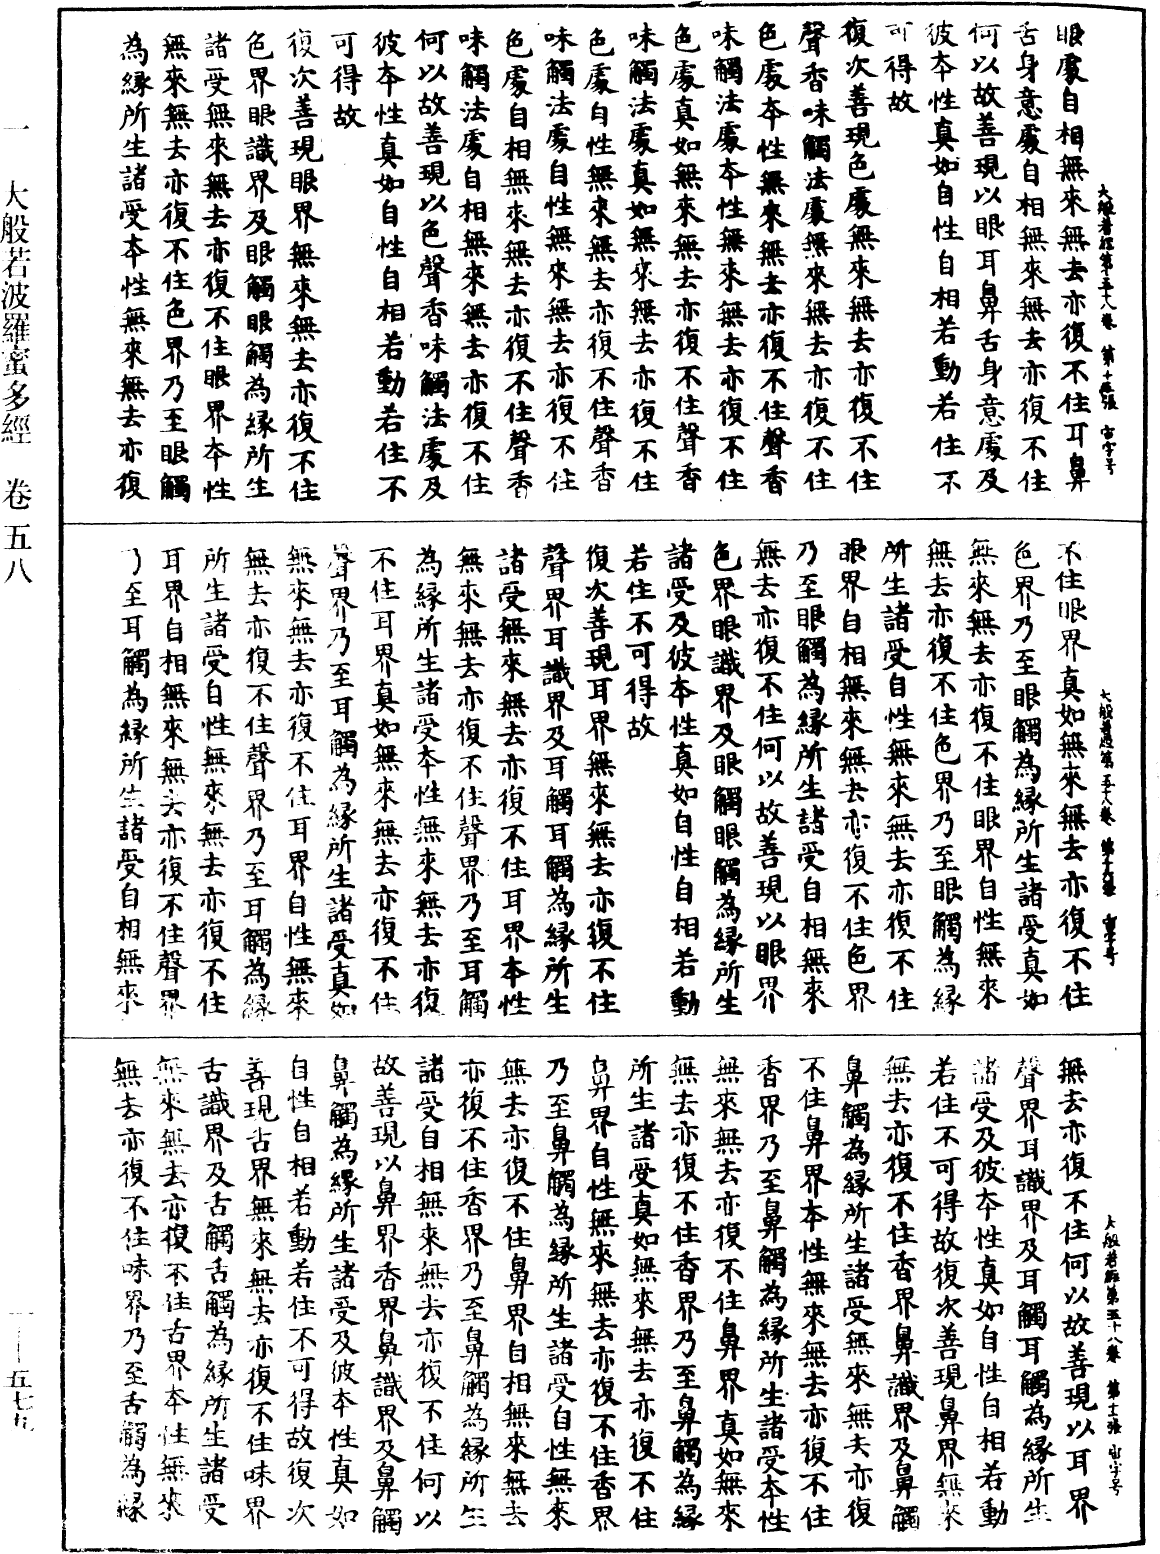 眼處自相無來無去亦復不住耳鼻
舌身意處自相無來無去亦復不住
何以故善現以眼耳鼻舌身意處及
彼本性真如自性自相若動若住不
可得故
復次善現色處無來無去亦復不住
聲香味觸法處無來無去亦復不住
色處本性無來無去亦復不住聲香
味觸法處本性無來無去亦復不住
色處真如無來無去亦復不住聲香
味觸法處真如無來無去亦復不住
色處自性無來無去亦復不住聲香
味觸法處自性無來無去亦復不住
色處自相無來無去亦復不住聲香
味觸法處自相無來無去亦復不住
何以故善現以色聲香味觸法處及
彼本性真如自性自相若動若住不
可得故
復次善現眼界無來無去亦復不住
色界眼識界及眼觸眼觸為緣所生
諸受無來無去亦復不住眼界本性
無來無去亦復不住色界乃至眼觸
為緣所生諸受本性無來無去亦復
大般若經第五十八卷 第十張 宙字号
不住眼界真如無來無去亦復不住
色界乃至眼觸為緣所生諸受真如
無來無去亦復不住眼界自性無來
無去亦復不住色界乃至眼觸為緣
所生諸受自性無來無去亦復不住
眼界自相無來無去亦復不住色界
乃至眼觸為緣所生諸受自相無來
無去亦復不住何以故善現以眼界
色界眼識界及眼觸眼觸為緣所生
諸受及彼本性真如自性自相若動
若住不可得故
復次善現耳界無來無去亦復不住
聲界耳識界及耳觸耳觸為緣所生
諸受無來無去亦復不住耳界本性
無來無去亦復不住聲界乃至耳觸
為緣所生諸受本性無來無去亦復
不住耳界真如無來無去亦復不住
聲界乃至耳觸為緣所生諸受真如
無來無去亦復不住耳界自性無來
無去亦復不住聲界乃至耳觸為緣
所生諸受自性無來無去亦復不住
耳界自相無來無去亦復不住聲界
乃至耳觸為緣所生諸受自相無來
大般若經第五十八卷
無去亦復不住何以故善現以耳界
聲界耳識界及耳觸耳觸為緣所生
諸受及彼本性真如自性自相若動
若住不可得故復次善現鼻界無來
無去亦復不住香界鼻識界及鼻觸
鼻觸為緣所生諸受無來無去亦復
不住鼻界本性無來無去亦復不住
香界乃至鼻觸為緣所生諸受本性
無來無去亦復不住鼻界真如無來
無去亦復不住香界乃至鼻觸為緣
所生諸受真如無來無去亦復不住
鼻界自性無來無去亦復不住香界
乃至鼻觸為緣所生諸受自性無來
無去亦復不住鼻界自相無來無去
亦復不住香界乃至鼻觸為緣所生
諸受自相無來無去亦復不住何以
故善現以鼻界香界鼻識界及鼻觸
鼻觸為緣所生諸受及彼本性真如
自性自相若動若住不可得故復次
善現舌界無來無去亦復不住味界
舌識界及舌觸舌觸為緣所生諸受
無來無去亦復不住舌界本性無來
無去亦復不住味界乃至舌觸為緣
大般若經第五十八卷 第十二張 宙字号
大般若波羅蜜多經 卷五八
一—五七九